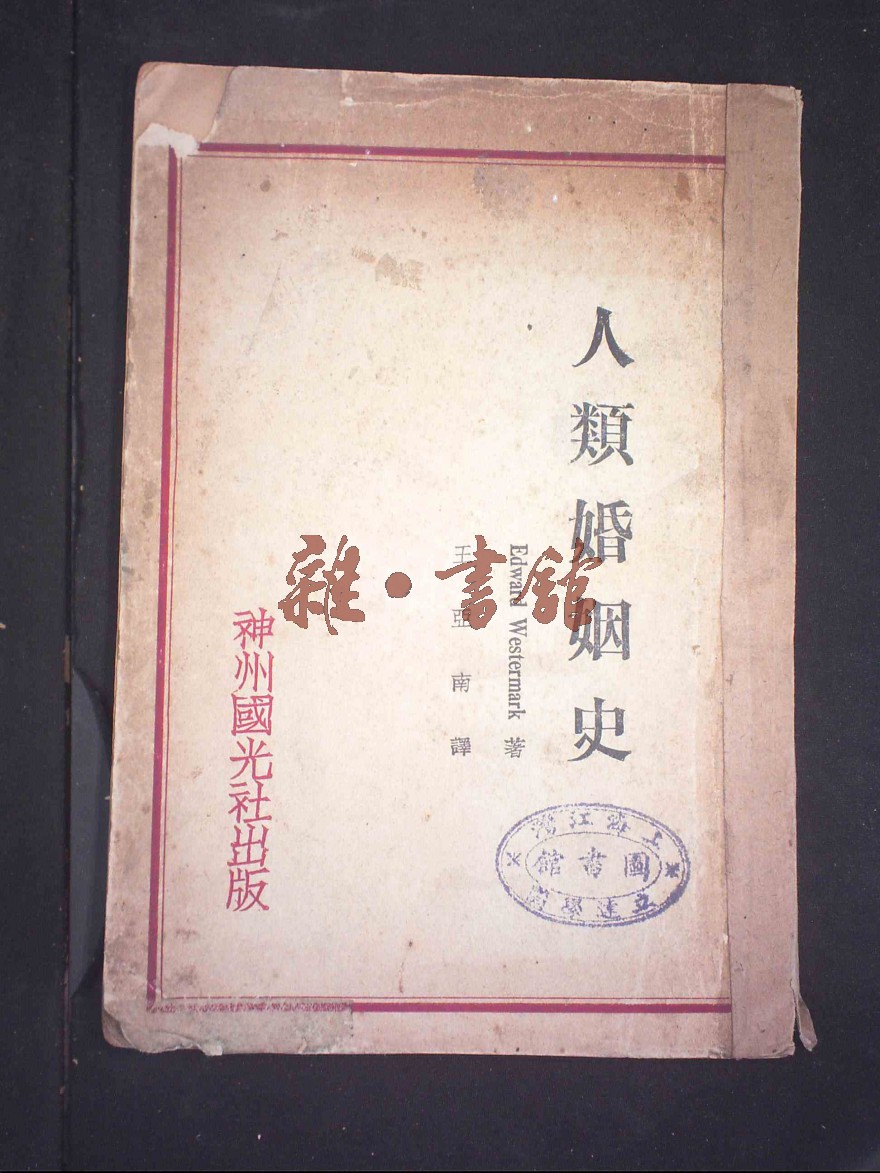 人類婚姻史
Edward Westermark 著
王亞南譯
神州國光社出版
雜·書館
圖書館